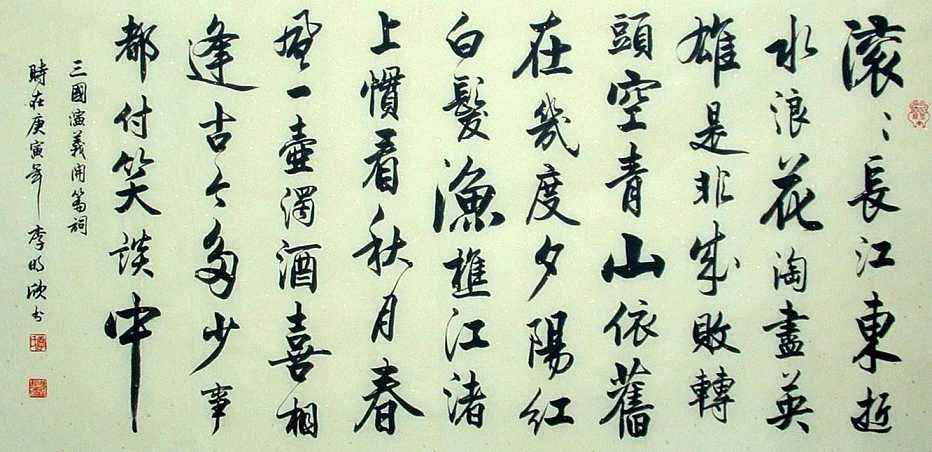 滚〻長江東逝
水浪花淘盡英
雄是非成敗轉
頭空青山依舊
在幾度夕陽紅
白髮漁樵江渚
上慣看秋月春
風一壺濁酒喜相
逢古今多少事
都付笑談中
三國演義開篇詞
時在庚寅年 李明欣书